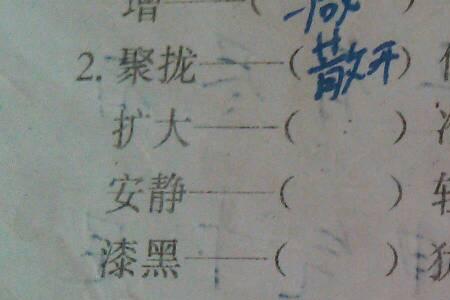 增——( 减 )
2. 聚拢——(散开)
扩大——( )
安静——( )
漆黑——( )